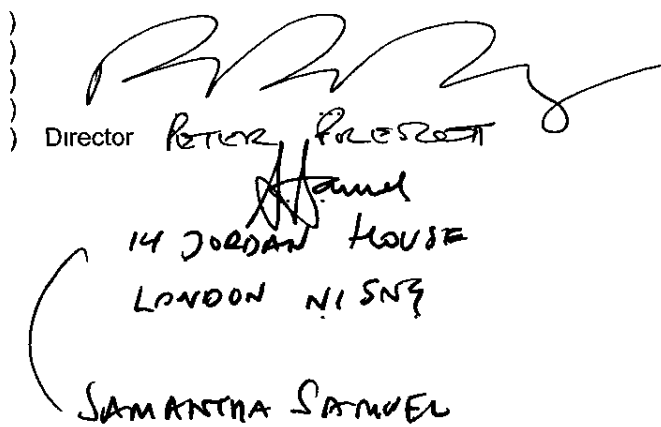 )
)
)
)
) Director PETER PRESCOTT
14 JORDAN HOUSE
LONDON N1
SAMANTHA SAMUEL